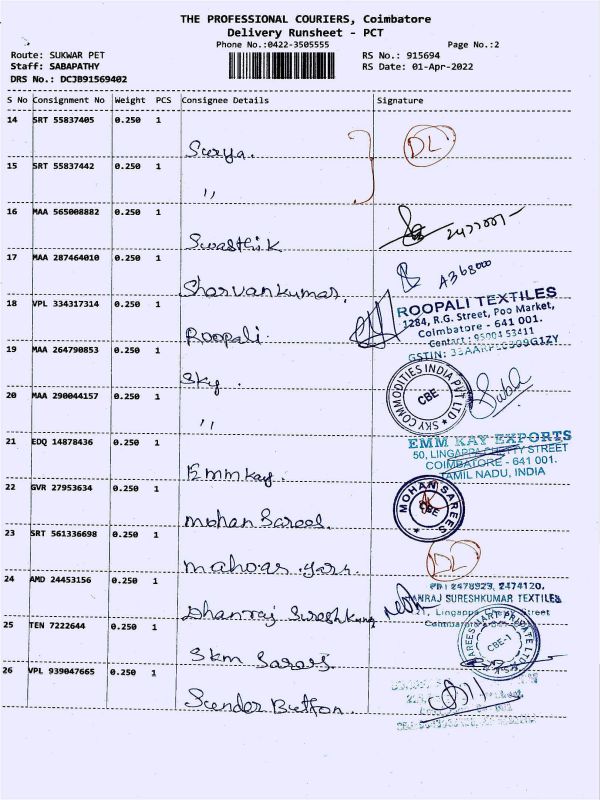 THE PROFESSIONAL COURIERS, Coimbatore
Delivery Runsheet - PCT
Phone No.:0422-3505555 Page No.:2
Route: SUKWAR PET RS No.: 915694
Staff: SABAPATHY RS Date: 01-Apr-2022
DRS No.: DCJB91569402
S No Consignment No Weight PCS Consignee Details Signature
14 SRT 55837405 0.250 1
Surya. DL
15 SRT 55837442 0.250 1
,,
16 MAA 565008882 0.250 1
Swasthik
17 MAA 287464010 0.250 1
Sharvankumar. A368000
18 VPL 334317314 0.250 1
Roopali.
ROOPALI TEXTILES
1284, R.G. Street, Poo Market,
Coimbatore - 641 001.
Contact: 95004 53411
GSTIN:
19 MAA 264790853 0.250 1
Sky.
SKY COMMODITIES INDIA PVT LTD
CBE
20 MAA 290044157 0.250 1
,,
21 EDQ 14878436 0.250 1
Emmkay.
EMM KAY EXPORTS
50, LINGAPPA CHETTY STREET
COIMBATORE - 641 001.
TAMIL NADU, INDIA
22 GVR 27953634 0.250 1
Mohan Sarees.
MOHAN SAREES
CBE
23 SRT 561336698 0.250 1
DL
24 AMD 24453156 0.250 1
Dhanraj Sureshkumar
2474120,
SURESHKUMAR TEXTILES
Street
25 TEN 7222644 0.250 1
Skm Sarees
CBE-1
26 VPL 939047665 0.250 1
Sunder Button